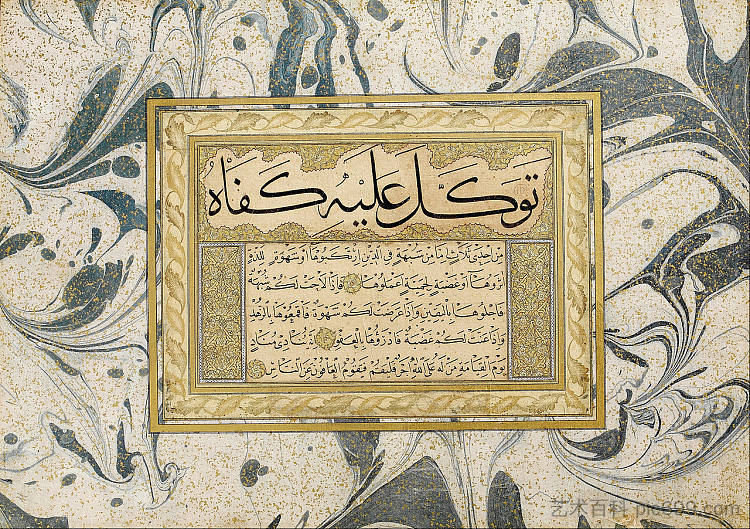 توكل عليه كفاه
من احدى ثلاث اما من شبهة في الدين ارتكبوها او شهوة للذة
اثروها او غضبة لحمية اعملوها فاذا لاحت لكم شبهة
فاجلوها باليقين واذا عرضت لكم شهوة فاقمعوها بالزهد
واذا عنت لكم غضبة فادرؤها بالعفو ينادي مناد
يوم القيامة من له على الله اجر فليقم فيقوم العافون عن الناس
艺术百科 pic699.com